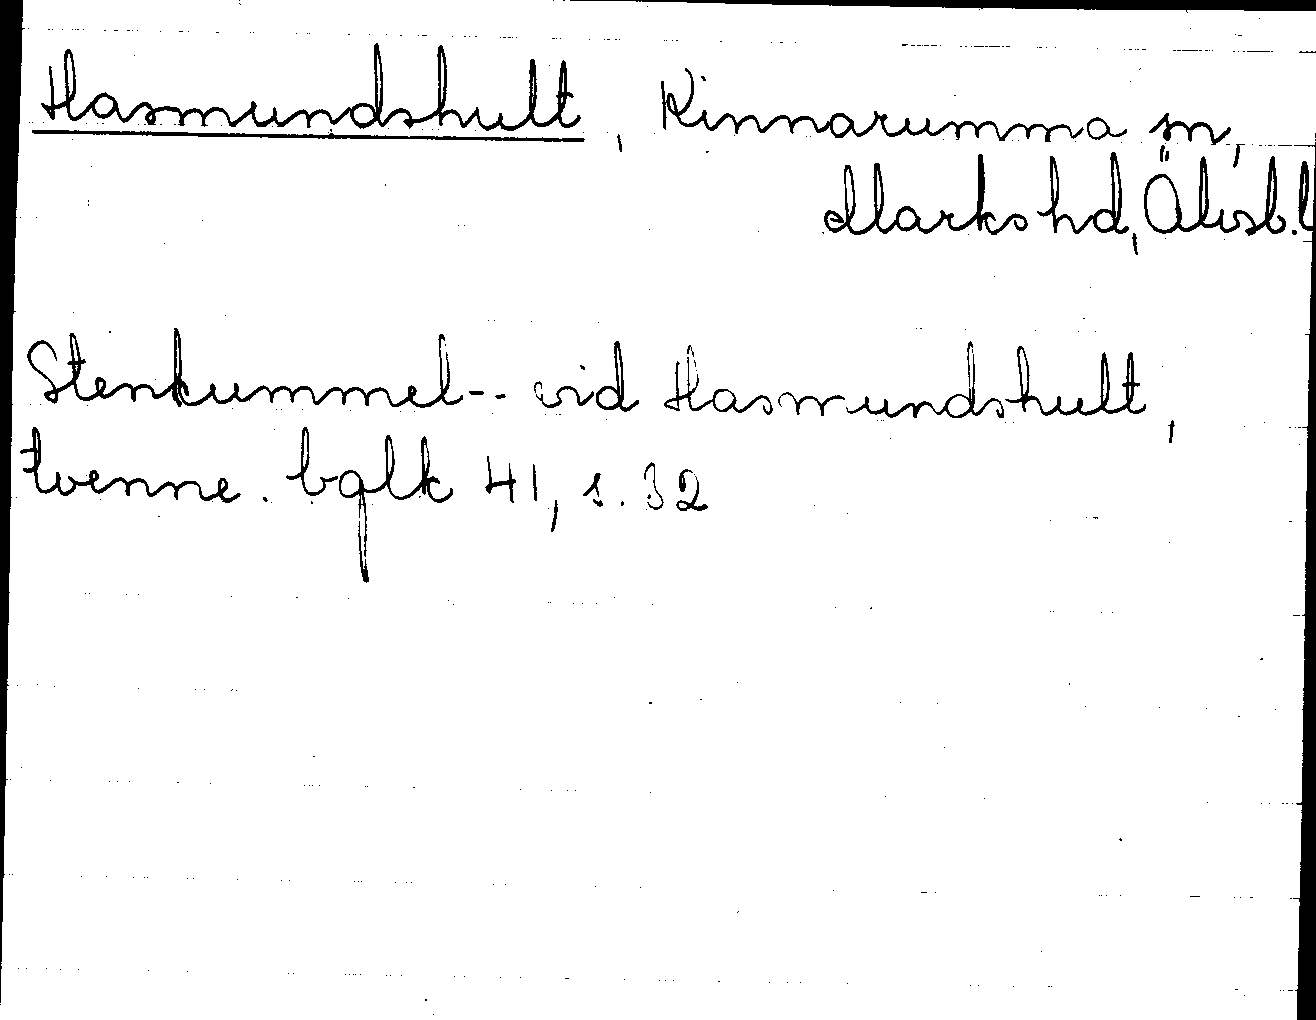 Hasmundshult, Kinnarumma sn,
Marks hd, Älvsb. l
Stenkummel-- vid Hasmundshult,
tvenne. bglk 41, s. 32